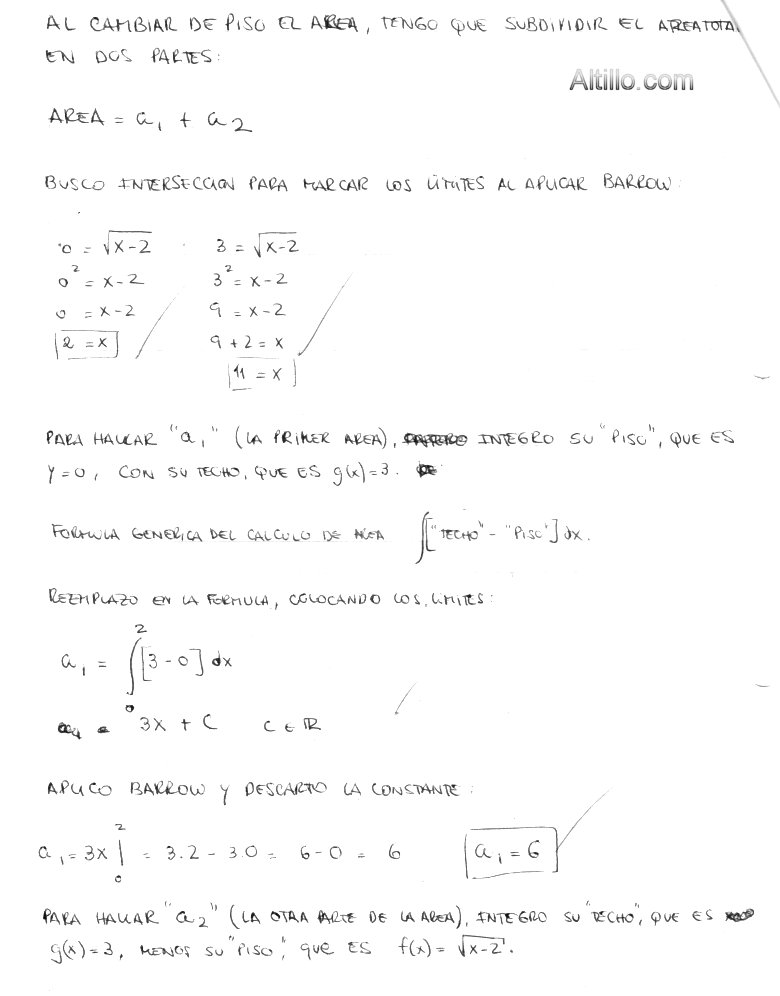 AL CAMBIAR DE PISO EL AREA, TENGO QUE SUBDIVIDIR EL AREA TOTAL
EN DOS PARTES:
Altillo.com
AREA = a₁ + a₂
BUSCO INTERSECCION PARA MARCAR LOS LÍMITES AL APLICAR BARROW:
0 = √x-2    3 = √x-2
0² = x-2    3² = x-2
0 = x-2    9 = x-2
2 = x    9 + 2 = x
11 = x
PARA HALLAR "a₁" (LA PRIMER AREA), INTEGRO SU "PISO", QUE ES
y=0, CON SU TECHO, QUE ES g(x)=3.
FORMULA GENERICA DEL CALCULO DE AREA ∫["TECHO" - "PISO"] dx.
REEMPLAZO EN LA FORMULA, COLOCANDO LOS LIMITES:
a₁ = ∫₀² [3-0] dx
3x + C    C ∈ ℝ
APLICO BARROW Y DESCARTO LA CONSTANTE:
a₁ = 3x |₀² = 3.2 - 3.0 = 6-0 = 6    a₁ = 6
PARA HALLAR "a₂" (LA OTRA PARTE DE LA AREA), INTEGRO SU "TECHO", QUE ES
g(x)=3, MENOS SU "PISO", QUE ES f(x) = √x-2.